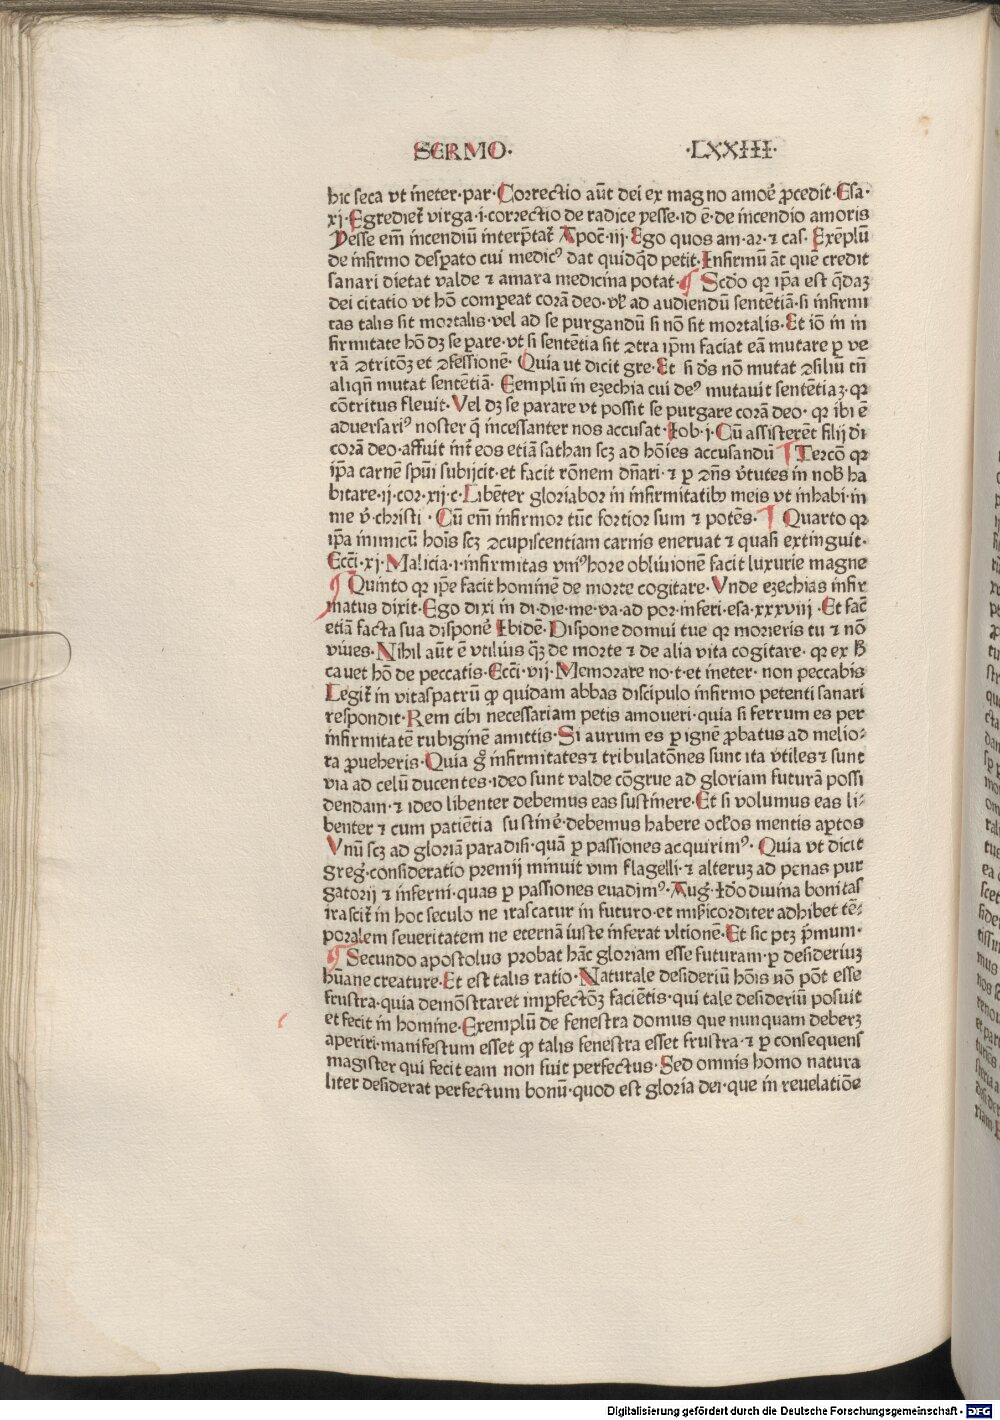 SERMO· ·LXXIIII·
hic seca vt ineter·par·Correctio aūt dei ex magno amoē ꝓcedit·Esa·
xj·Egrediet̄ virga·i·correctio de radice yesse·id ē·de incendio amoris
Yesse em̄ incendiū interp̄tat̄ Apoc̄·iij·Ego quos am·ar·⁊ cas·Exēplū
de infirmo desꝑato cui medicꝰ dat quidqd̄ petit·Infirmū āt que credit
sanari dietat valde ⁊ amara medicina potat·¶ Scdo qꝛ ip̄a est q̄daꝫ
dei citatio vt hō compeat corā deo·vl̓ ad audiendū sententiā·si infirmi
tas talis sit mortalis·vel ad se purgandū si nō sit mortalis·Et iō in in
firmitate hō dꝫ se ꝑare·vt si sententia sit ꝯtra ip̄m faciat eā mutare ꝑ ve
rā ꝯtritōꝫ et ꝯfessionē· Quia ut dicit gre·Et si dn̄s nō mutat ꝯsiliū tn̄
aliqn̄ mutat sentētiā· Eemplū in ezechia cui deꝰ mutauit sentētiaꝫ·qꝛ
cōtritus fleuit·Vel dꝫ se parare vt possit se purgare corā deo· qꝛ ibi ē
aduersariꝰ noster q̄ incessanter nos accusat·Iob·j·Cū assisterēt filij di
corā deo·affuit int̄ eos etiā sathan scꝫ ad hōies accusandū ¶ Tercō qꝛ
ip̄a carnē spūi subijcit·et facit rōnem dn̄ari·⁊ ꝑ ꝯn̄s v̓tutes in nob̄ ha
bitare·ij·cor·xij·c·Libēter gloriabor in infirmitatibꝫ meis vt inhabi·in
me v̓·christi · Cū em̄ infirmor tūc fortior sum ⁊ potēs·¶ Quarto qꝛ
ip̄a inimicū hoīs scꝫ ꝯcupiscentiam carnis eneruat ⁊ quasi extinguit·
Ecci·xj·Malicia·i·infirmitas vniꝰhore obliuionē facit luxurie magne
¶ Quinto qꝛ ip̄e facit hominē de morte cogitare·Vnde ezechias infir
matus dixit·Ego dixi in di·die·me·va·ad por·inferi·esa·xxxviij ·Et fac̄
etiā facta sua disponē Ibidē·Dispone domui tue qꝛ morieris tu ⁊ nō
viues·Nihil aūt ē vtilius qꝫ de morte ⁊ de alia vita cogitare· qꝛ ex h̄
cauet hō de peccatis·Ecci·vij·Memorare no·t·et ineter· non peccabis
Legit̄ in vitaspatrū ꝙ quidam abbas discipulo infirmo petenti sanari
respondit·Rem cibi necessariam petis amoueri·quia si ferrum es per
infirmitatē rubiginē amittis·Si aurum es ꝑ ignē ꝓbatus ad melio-
ra ꝓueheris·Quia g̊ infirmitates⁊ tribulatōnes sunt ita vtiles⁊ sunt
via ad celū ducentes·ideo sunt valde cōgrue ad gloriam futurā possi
dendam·⁊ ideo libenter debemus eas sustinere·Et si volumus eas li⸗
benter ⁊ cum patiētia sustinē·debemus habere oc̄los mentis aꝑtos
Vnū scꝫ ad gloriā paradisi·quā ꝑ passiones acquirimꝰ· Quia vt dicit
greg̓·consideratio premij minuit vim flagelli·⁊ alteruꝫ ad penas pur
gatorij ⁊ inferni·quas ꝑ passiones euadimꝰ·Aug̓·Idō diuina bonitas
irascit̄ in hoc seculo ne irascatur in futuro·et mis̄icorditer adhibet tē⸗
poralem seueritatem ne eternā iuste inferat vltionē·Et sic ptꝫ p̄mum·
¶ Secundo apostolus probat hāc gloriam esse futuram·ꝑ desideriuꝫ
hūane creature·Et est talis ratio·Naturale desideriū hōis nō pōt esse
frustra·quia demōstraret imꝑfectōꝫ faciētis·qui tale desideriū posuit
et fecit in homine·Exemplū de fenestra domus que nunquam deberꝫ
aperiri·manifestum esset ꝙ talis fenestra esset frustra·⁊ ꝑ consequens
magister qui fecit eam non fuit perfectus·Sed omnis homo natura
liter desiderat perfectum bonū·quod est gloria dei·que in reuelatiōe
Digitalisierung gefördert durch die Deutsche Forschungsgemeinschaft - DFG